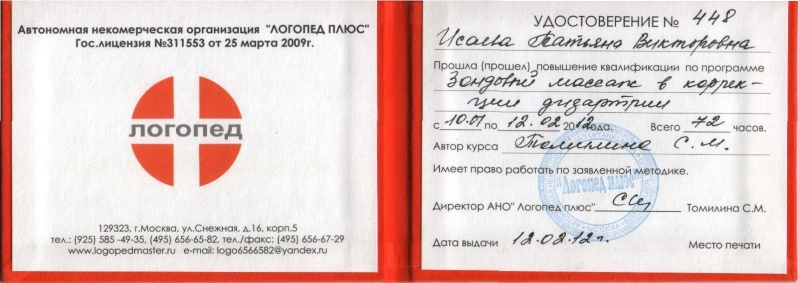 Автономная некомерческая организация "ЛОГОПЕД ПЛЮС"
Гос.лицензия №311553 от 25 марта 2009г.
ЛОГОПЕД
129323, г.Москва, ул.Снежная, д.16, корп.5
тел.: (925) 585 -49-35, (495) 656-65-82, тел./факс: (495) 656-67-29
www.logopedmaster.ru e-mail: logo6566582@yandex.ru
УДОСТОВЕРЕНИЕ № 448
Исаева Татьяна Викторовна
Прошла (прошел) повышение квалификации по программе
Зондовый массаж в коррек-
ции дизартрии
с 10.01 по 12.02 2012года. Всего 72 часов.
Автор курса Томилина С.М.
Имеет право работать по заявленной методике.
"Логопед плюс"
Директор АНО" Логопед плюс" Томилина С.М.
Дата выдачи 12.02.12г. Место печати